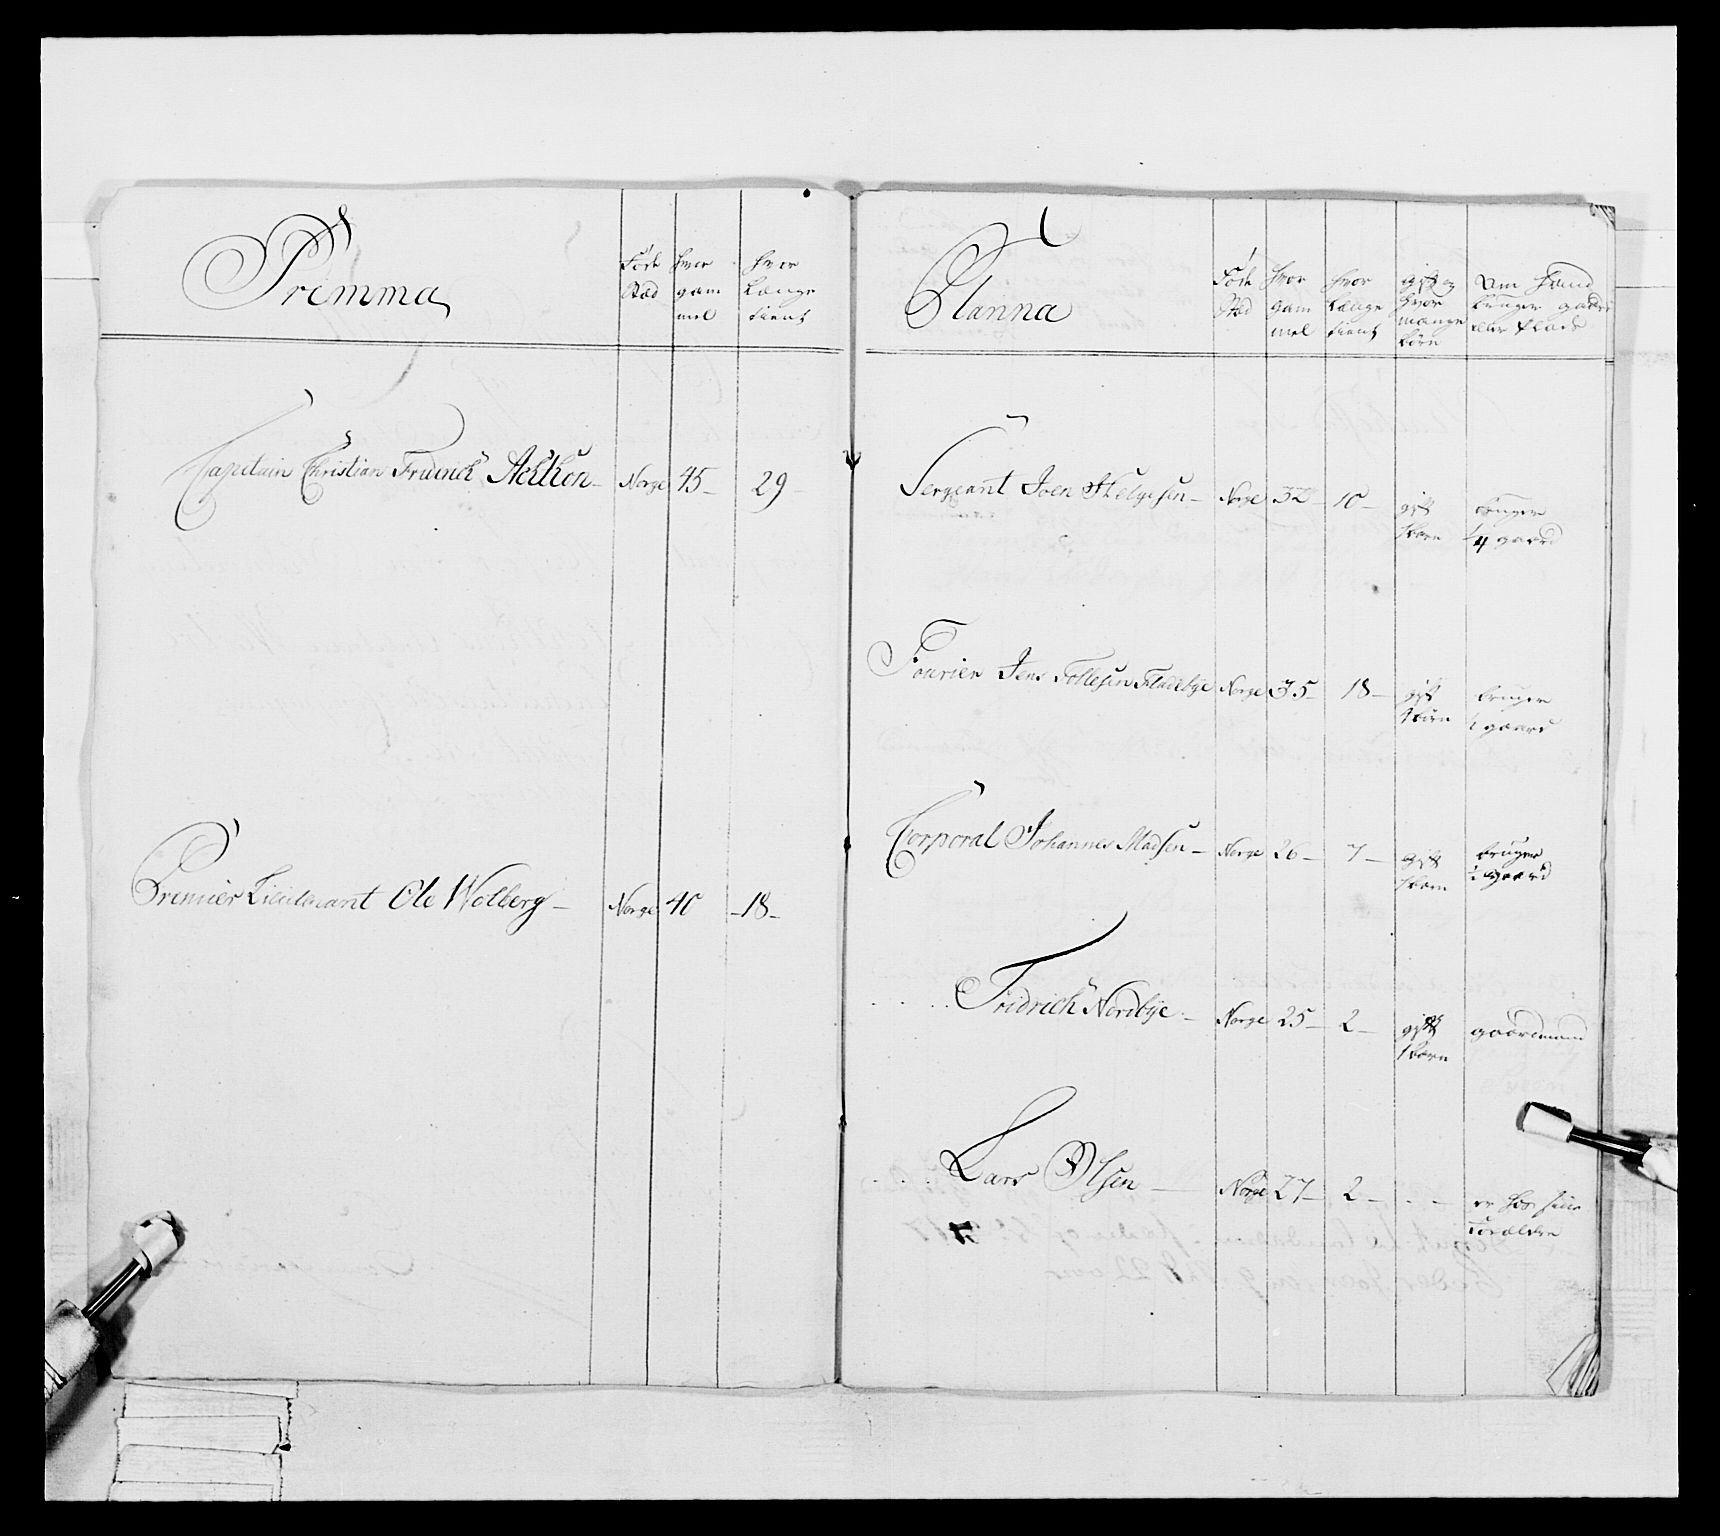 Primma
Føde Stæd
hvor gam mel
hvor Længe tient
Capitain Christian Fridrich Achthon Norge 45 29
Premier Lieutenant Ole Wolberg Norge 40 18
Planna
Føde Stæd
hvor gam mel
hvor Længe tient
gift og hvor mange børn
om hand bruger gaard eller Plads
Sergeant Joen Helgesen Norge 32 10 gift 1 barn bruger 1/4 gaard
Fourier Jens Tollefsen Fladebye Norge 35 18 gift 4 børn bruger gaard
Corporal Johannes Madsen Norge 26 7 gift 1 barn bruger 1/2 gaard
Fridrich Nordbye Norge 25 2 gift 1 barn gaardmand
Lars Olsen Norge 27 2 er hos sine Forældre